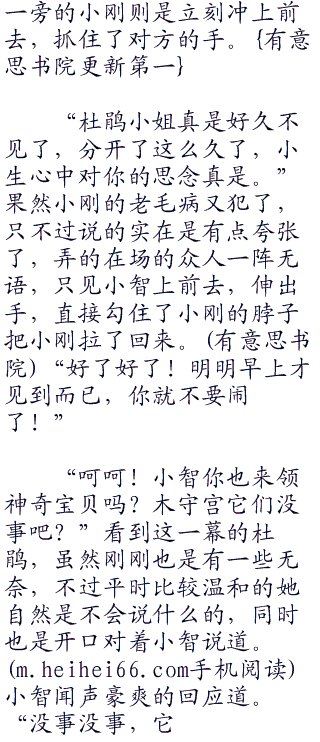 一旁的小刚则是立刻冲上前
去，抓住了对方的手。{有意
思书院更新第一}
“杜鹃小姐真是好久不
见了，分开了这么久了，小
生心中对你的思念真是。”
果然小刚的老毛病又犯了，
只不过说的实在是有点夸张
了，弄的在场的众人一阵无
语，只见小智上前去，伸出
手，直接勾住了小刚的脖子
把小刚拉了回来。(有意思书
院)“好了好了！明明早上才
见到而已，你就不要闹
了！”
“呵呵！小智你也来领
神奇宝贝吗？木守宫它们没
事吧？”看到这一幕的杜
鹃，虽然刚刚也是有一些无
奈，不过平时比较温和的她
自然是不会说什么的，同时
也是开口对着小智说道。
(m.heihei66.com手机阅读)
小智闻声豪爽的回应道。
“没事没事，它